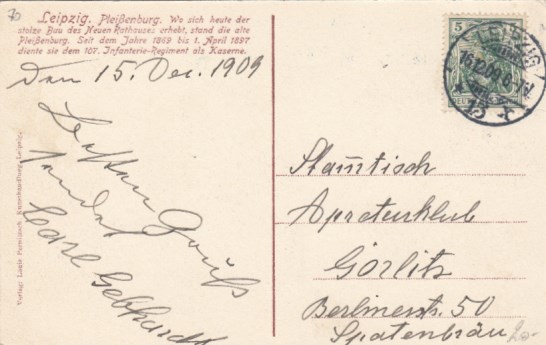 70
Leipzig. Pleißenburg. Wo sich heute der
stolze Bau des Neuen Rathauses erhebt, stand die alte
Pleißenburg. Seit dem Jahre 1869 bis 1. April 1897
diente sie dem 107. Infanterie-Regiment als Kaserne.
Den 15. Dec. 1909
Besten Gruß
sendet
Carl Gebhardt
Verlag: Louis Kunsthandlung, Leipzig.
5
LEIPZIG
16.12.09.
Stam̄tisch
Apratenklub
Görlitz
Berlinerst. 50
Spatenbräu